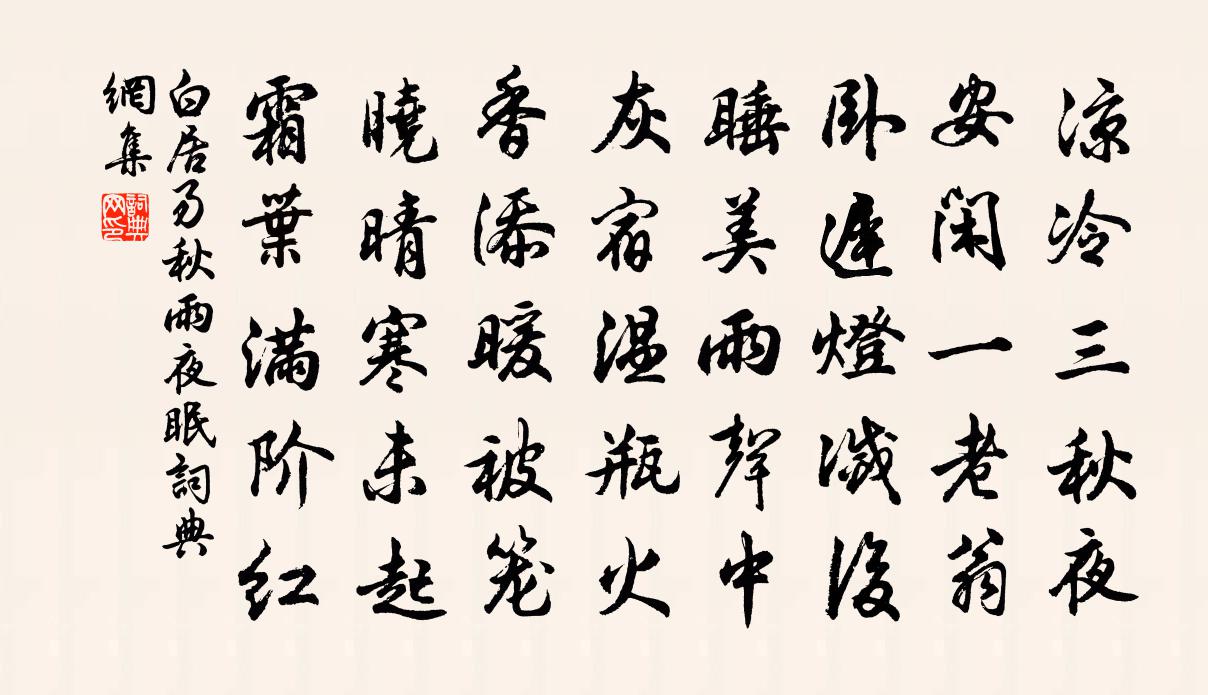 凉冷三秋夜
安閑一老翁
卧遲燈滅後
睡美雨聲中
灰宿温瓶火
香添暖被笼
曉晴寒未起
霜葉满阶红
白居易秋雨夜眠詞典
網集
詞典
网印